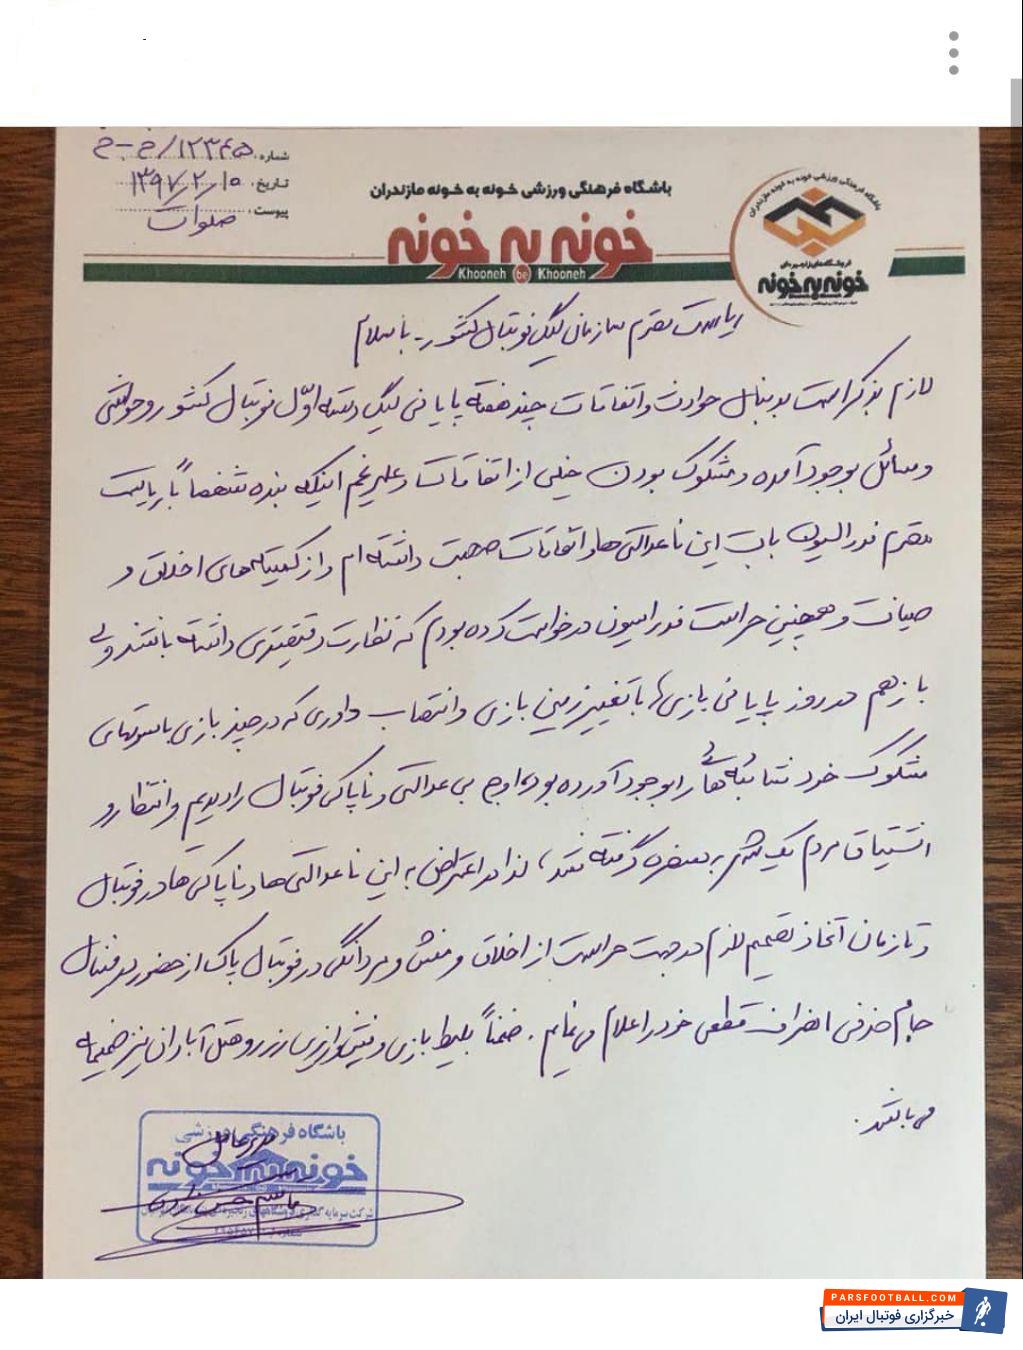 شماره: ۱۲۳۴۵/خ-خ
تاریخ: ۱۳۹۷/۲/۱۰
پیوست: صلوات
باشگاه فرهنگی ورزشی خونه به خونه مازندران
خونه به خونه
Khooneh be Khooneh
باشگاه فرهنگی ورزشی خونه به خونه مازندران
فروشگاه‌های زنجیره‌ای
خونه به خونه
ریاست محترم سازمان لیگ فوتبال کشور - با سلام
لازم بذکر است بدنبال حوادث و اتفاقات چند هفته پایانی لیگ دسته اوّل فوتبال کشور و حواشی
و مسائل بوجود آمده و مشکوک بودن خیلی از اتفاقات و علیرغم اینکه بنده شخصاً با ریاست
محترم فدراسیون بابت این ناعدالتی‌ها و اتفاقات صحبت داشته ام و از کمیته‌های اخلاق و
صیانت و همچنین حراست فدراسیون درخواست کرده بودم که نظارت دقیقتری داشته باشند ولی
باز هم در روز پایانی بازی‌ها با تغییر زمین بازی و انتصاب داوری که در چند بازی با سوتهای
مشکوک خود شائبه‌هائی را بوجود آورده بود، اوج بی عدالتی و ناپاکی فوتبال را دیدیم و انتظار و
اشتیاق مردم یک شهر به سخره گرفته شد، لذا در اعتراض به این ناعدالتی‌ها و ناپاکی‌ها در فوتبال
و تا زمان اتخاذ تصمیم لازم در جهت حراست از اخلاق و منش و مردانگی در فوتبال پاک از حضور در فینال
جام حذفی انصراف قطعی خود را اعلام می‌نمایم. ضمناً بلیط بازی و فیش واریزی رزرو هتل آبادان نیز ضمیمه
می‌باشد.
باشگاه فرهنگی ورزشی
خونه به خونه
مدیرعامل
PARSFOOTBALL.COM
خبرگزاری فوتبال ایران